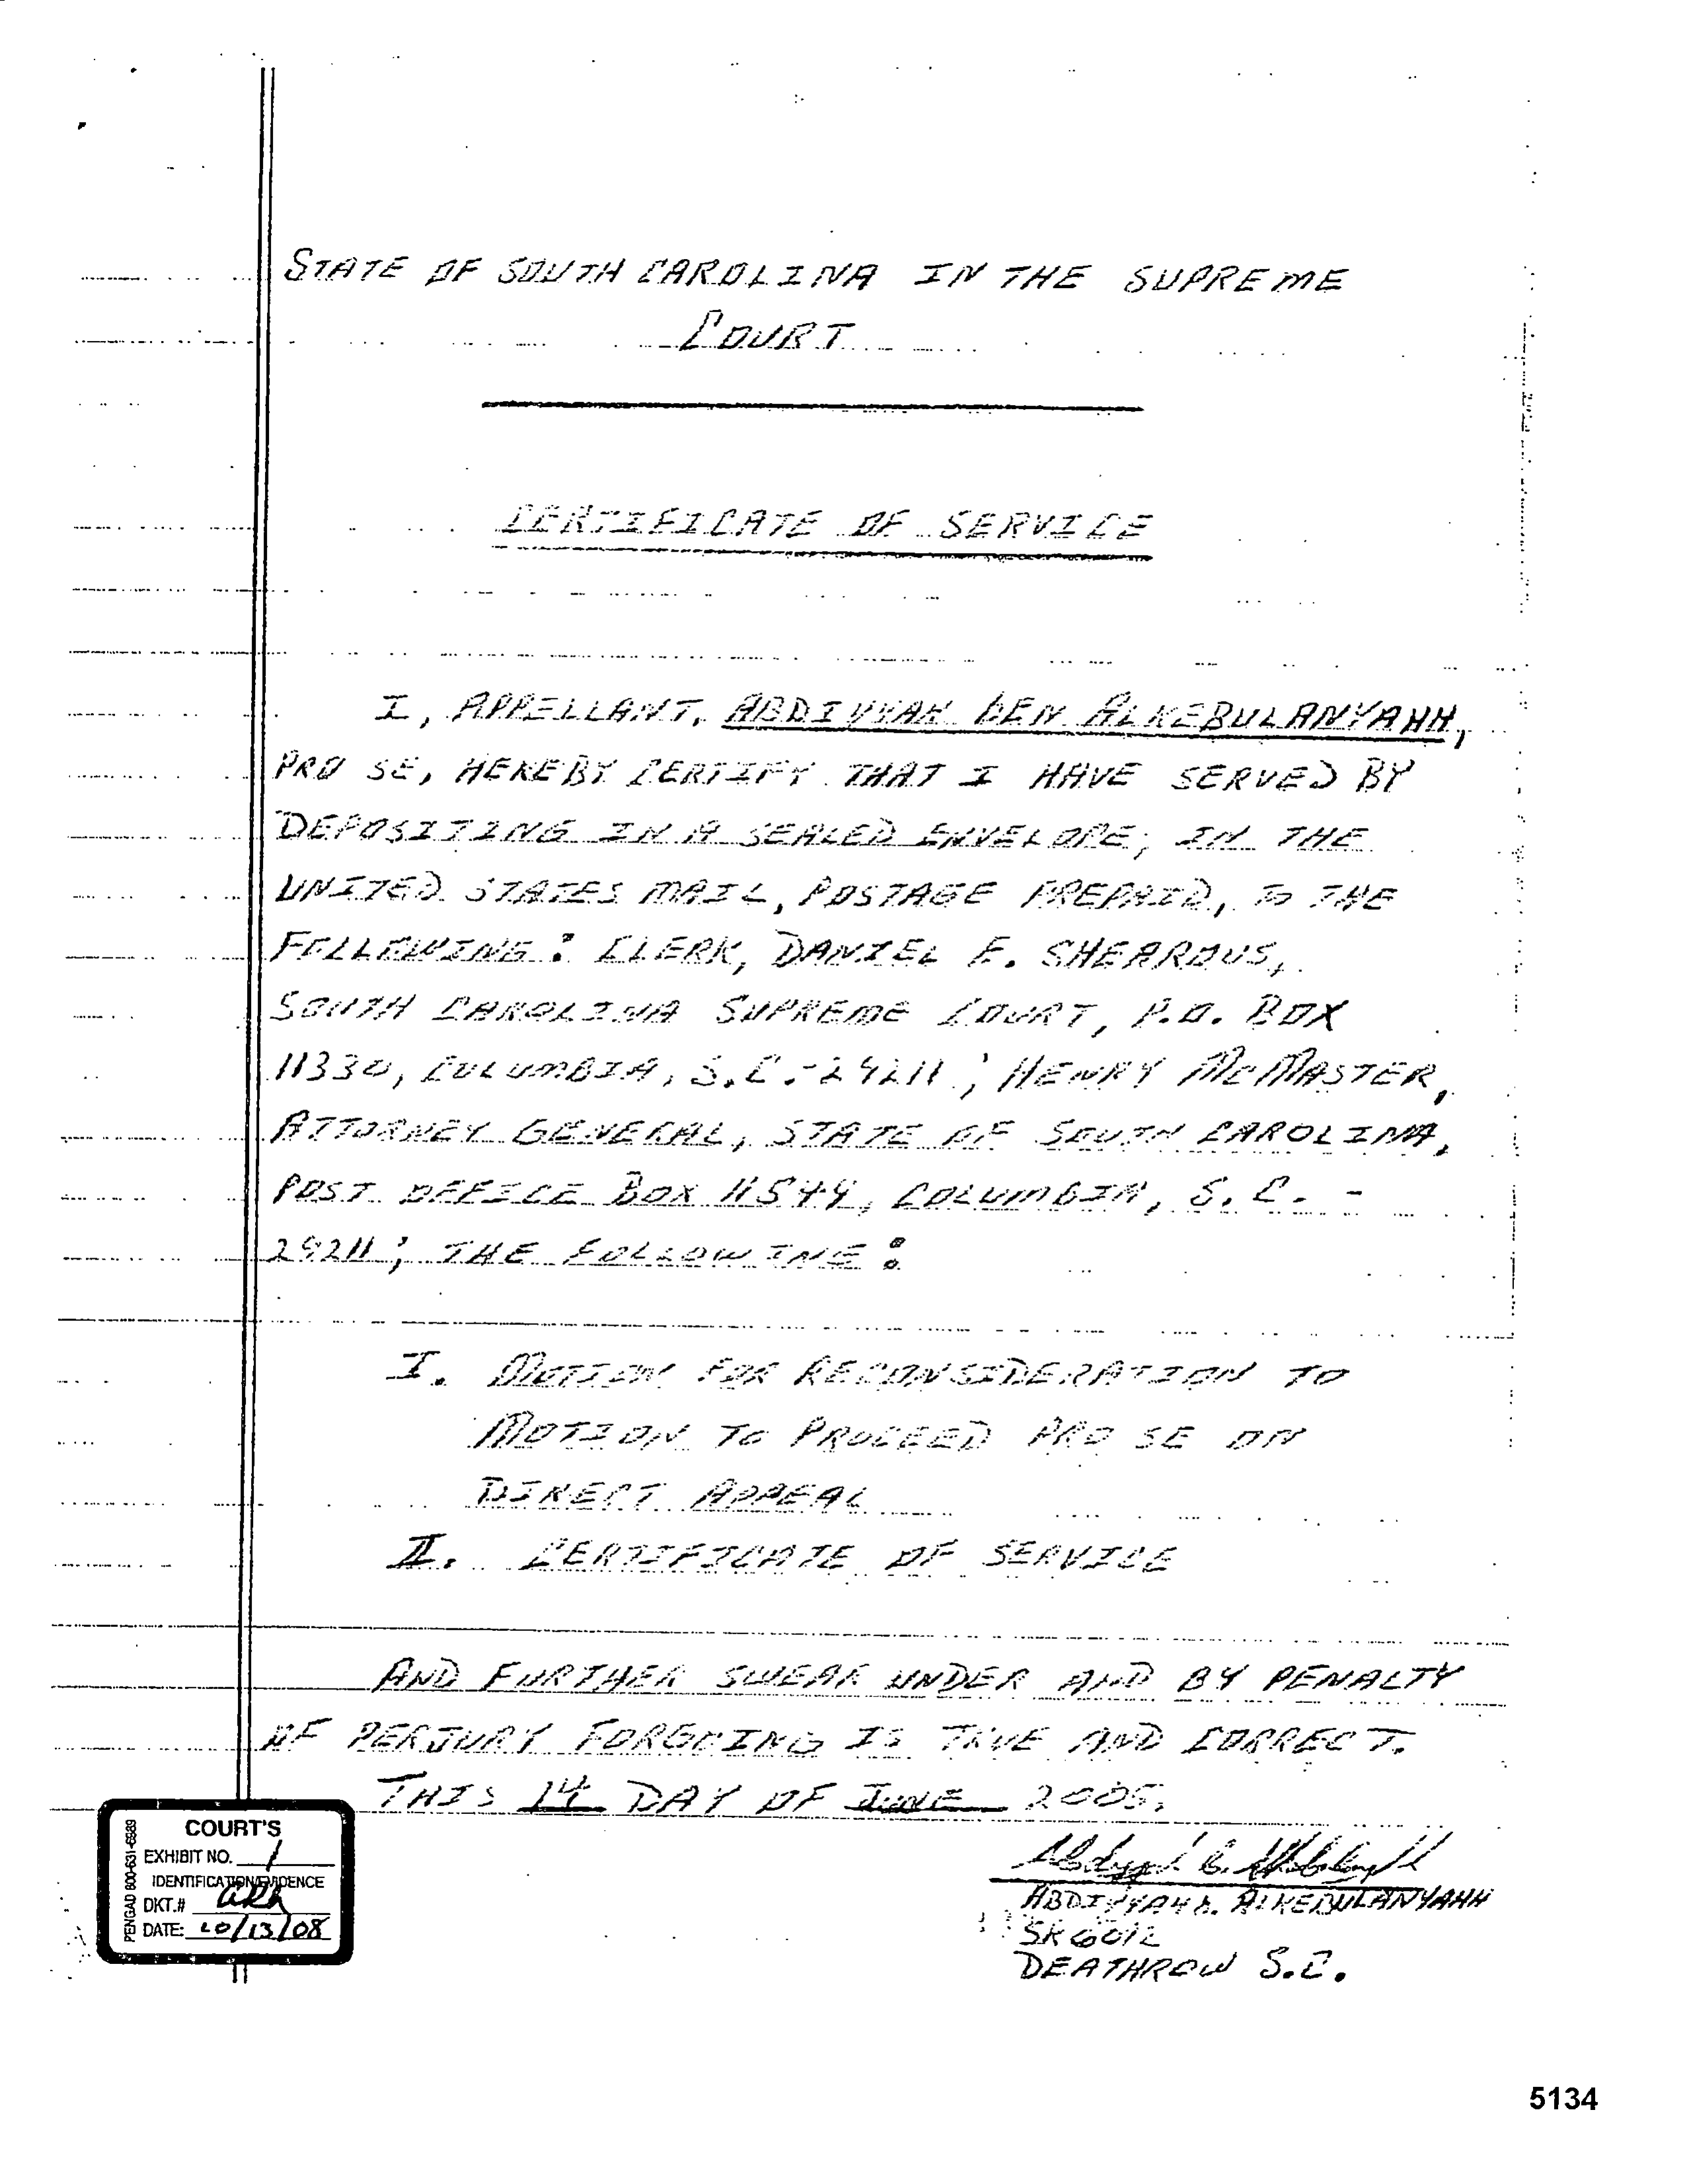 STATE OF SOUTH CAROLINA IN THE SUPREME
COURT
CERTIFICATE OF SERVICE
I, APPELLANT, ABDIYYAH BEN ALKEBULANYAHH,
PRO SE, HEREBY CERTIFY THAT I HAVE SERVED BY
DEPOSITING IN A SEALED ENVELOPE, IN THE
UNITED STATES MAIL, POSTAGE PREPAID, TO THE
FOLLOWING: CLERK, DANIEL E. SHEAROUS,
SOUTH CAROLINA SUPREME COURT, P.O. BOX
11330, COLUMBIA, S.C.-29211; HENRY McMASTER,
ATTORNEY GENERAL, STATE OF SOUTH CAROLINA,
POST OFFICE BOX 11549, COLUMBIA, S.C. -
29211; THE FOLLOWING:
I. MOTION FOR RECONSIDERATION TO
MOTION TO PROCEED PRO SE ON
DIRECT APPEAL
II. CERTIFICATE OF SERVICE
AND FURTHER SWEAR UNDER AND BY PENALTY
OF PERJURY FORGOING IS TRUE AND CORRECT.
THIS 14 DAY OF JUNE 2005.
ABDIYYAH B. ALKEBULANYAHH
SK6012
DEATHROW S.C.
PENGAD 800-631-6989
COURT'S
EXHIBIT NO. 1
IDENTIFICATION/EVIDENCE
DKT.#
DATE: 10/13/08
5134